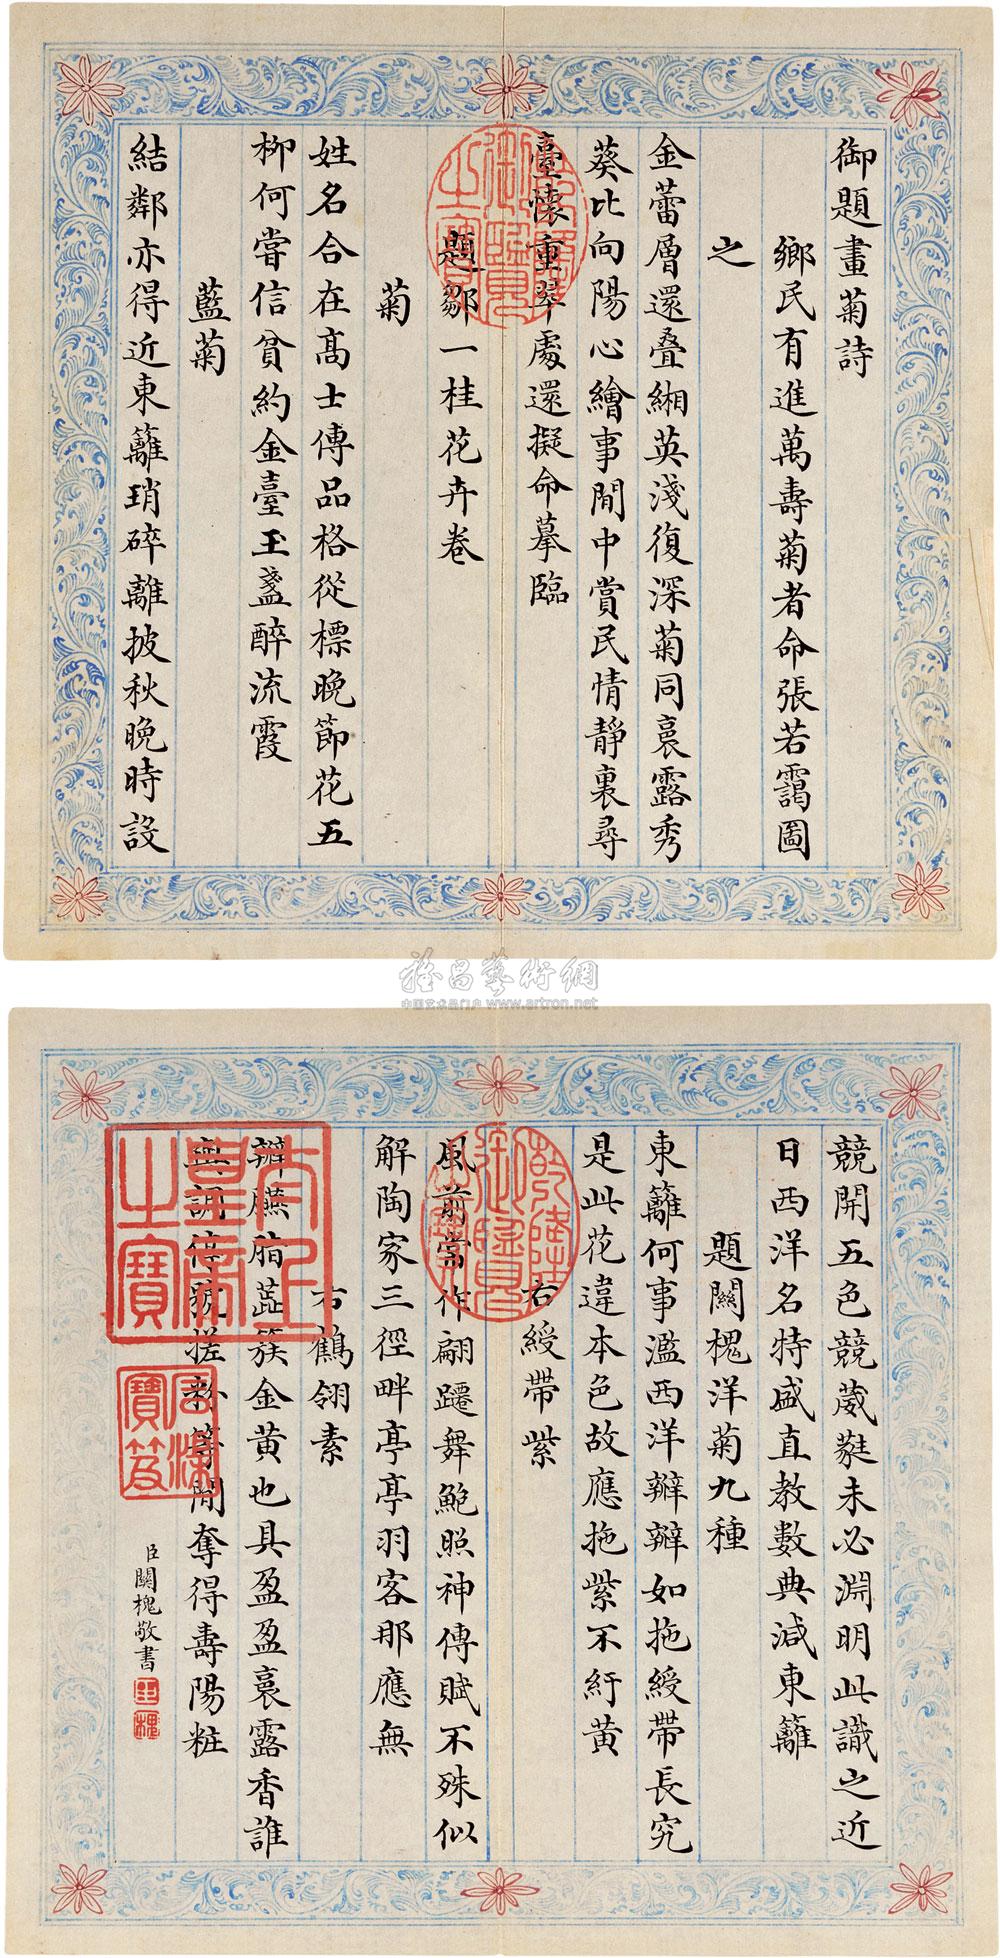 御題畫菊詩
鄉民有進萬壽菊者命張若靄圖
之
金蕾層還叠緗英淺復深菊同裛露秀
葵比向陽心繪事閒中賞民情靜裏尋
臺懷重翠處還擬命摹臨
題鄒一桂花卉卷
菊
姓名合在高士傳品格從標晚節花五
柳何嘗信貧約金臺玉盞醉流霞
藍菊
結鄰亦得近東籬瑣碎離披秋晚時設
乾隆御覽之寶
雅昌藝術網
中国艺术品门户 www.artron.net
競開五色競葳蕤未必淵明此識之近
日西洋名特盛直教數典減東籬
題關槐洋菊九種
東籬何事濫西洋辦辦如拖綬帶長究
是此花違本色故應拖紫不紆黃
右綬帶紫
風前當作翩躚舞鮑照神傳賦不殊似
解陶家三徑畔亭亭羽客那應無
右鶴翎素
辦臙脂蕋簇金黃也具盈盈裛露香誰
與調停號搓粉等閒奪得壽陽粧
臣關槐敬書
乾隆御覽之寶
太上皇帝之寶
石渠寶笈
臣
槐